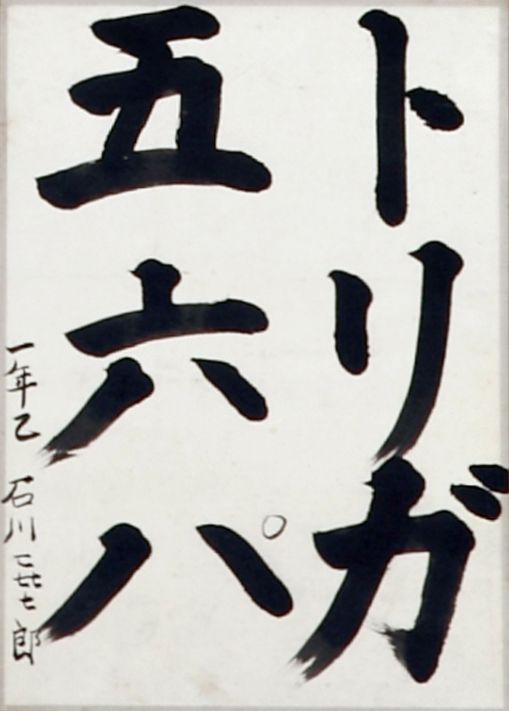 トリガ
五六パ
一年乙 石川㐂七郎